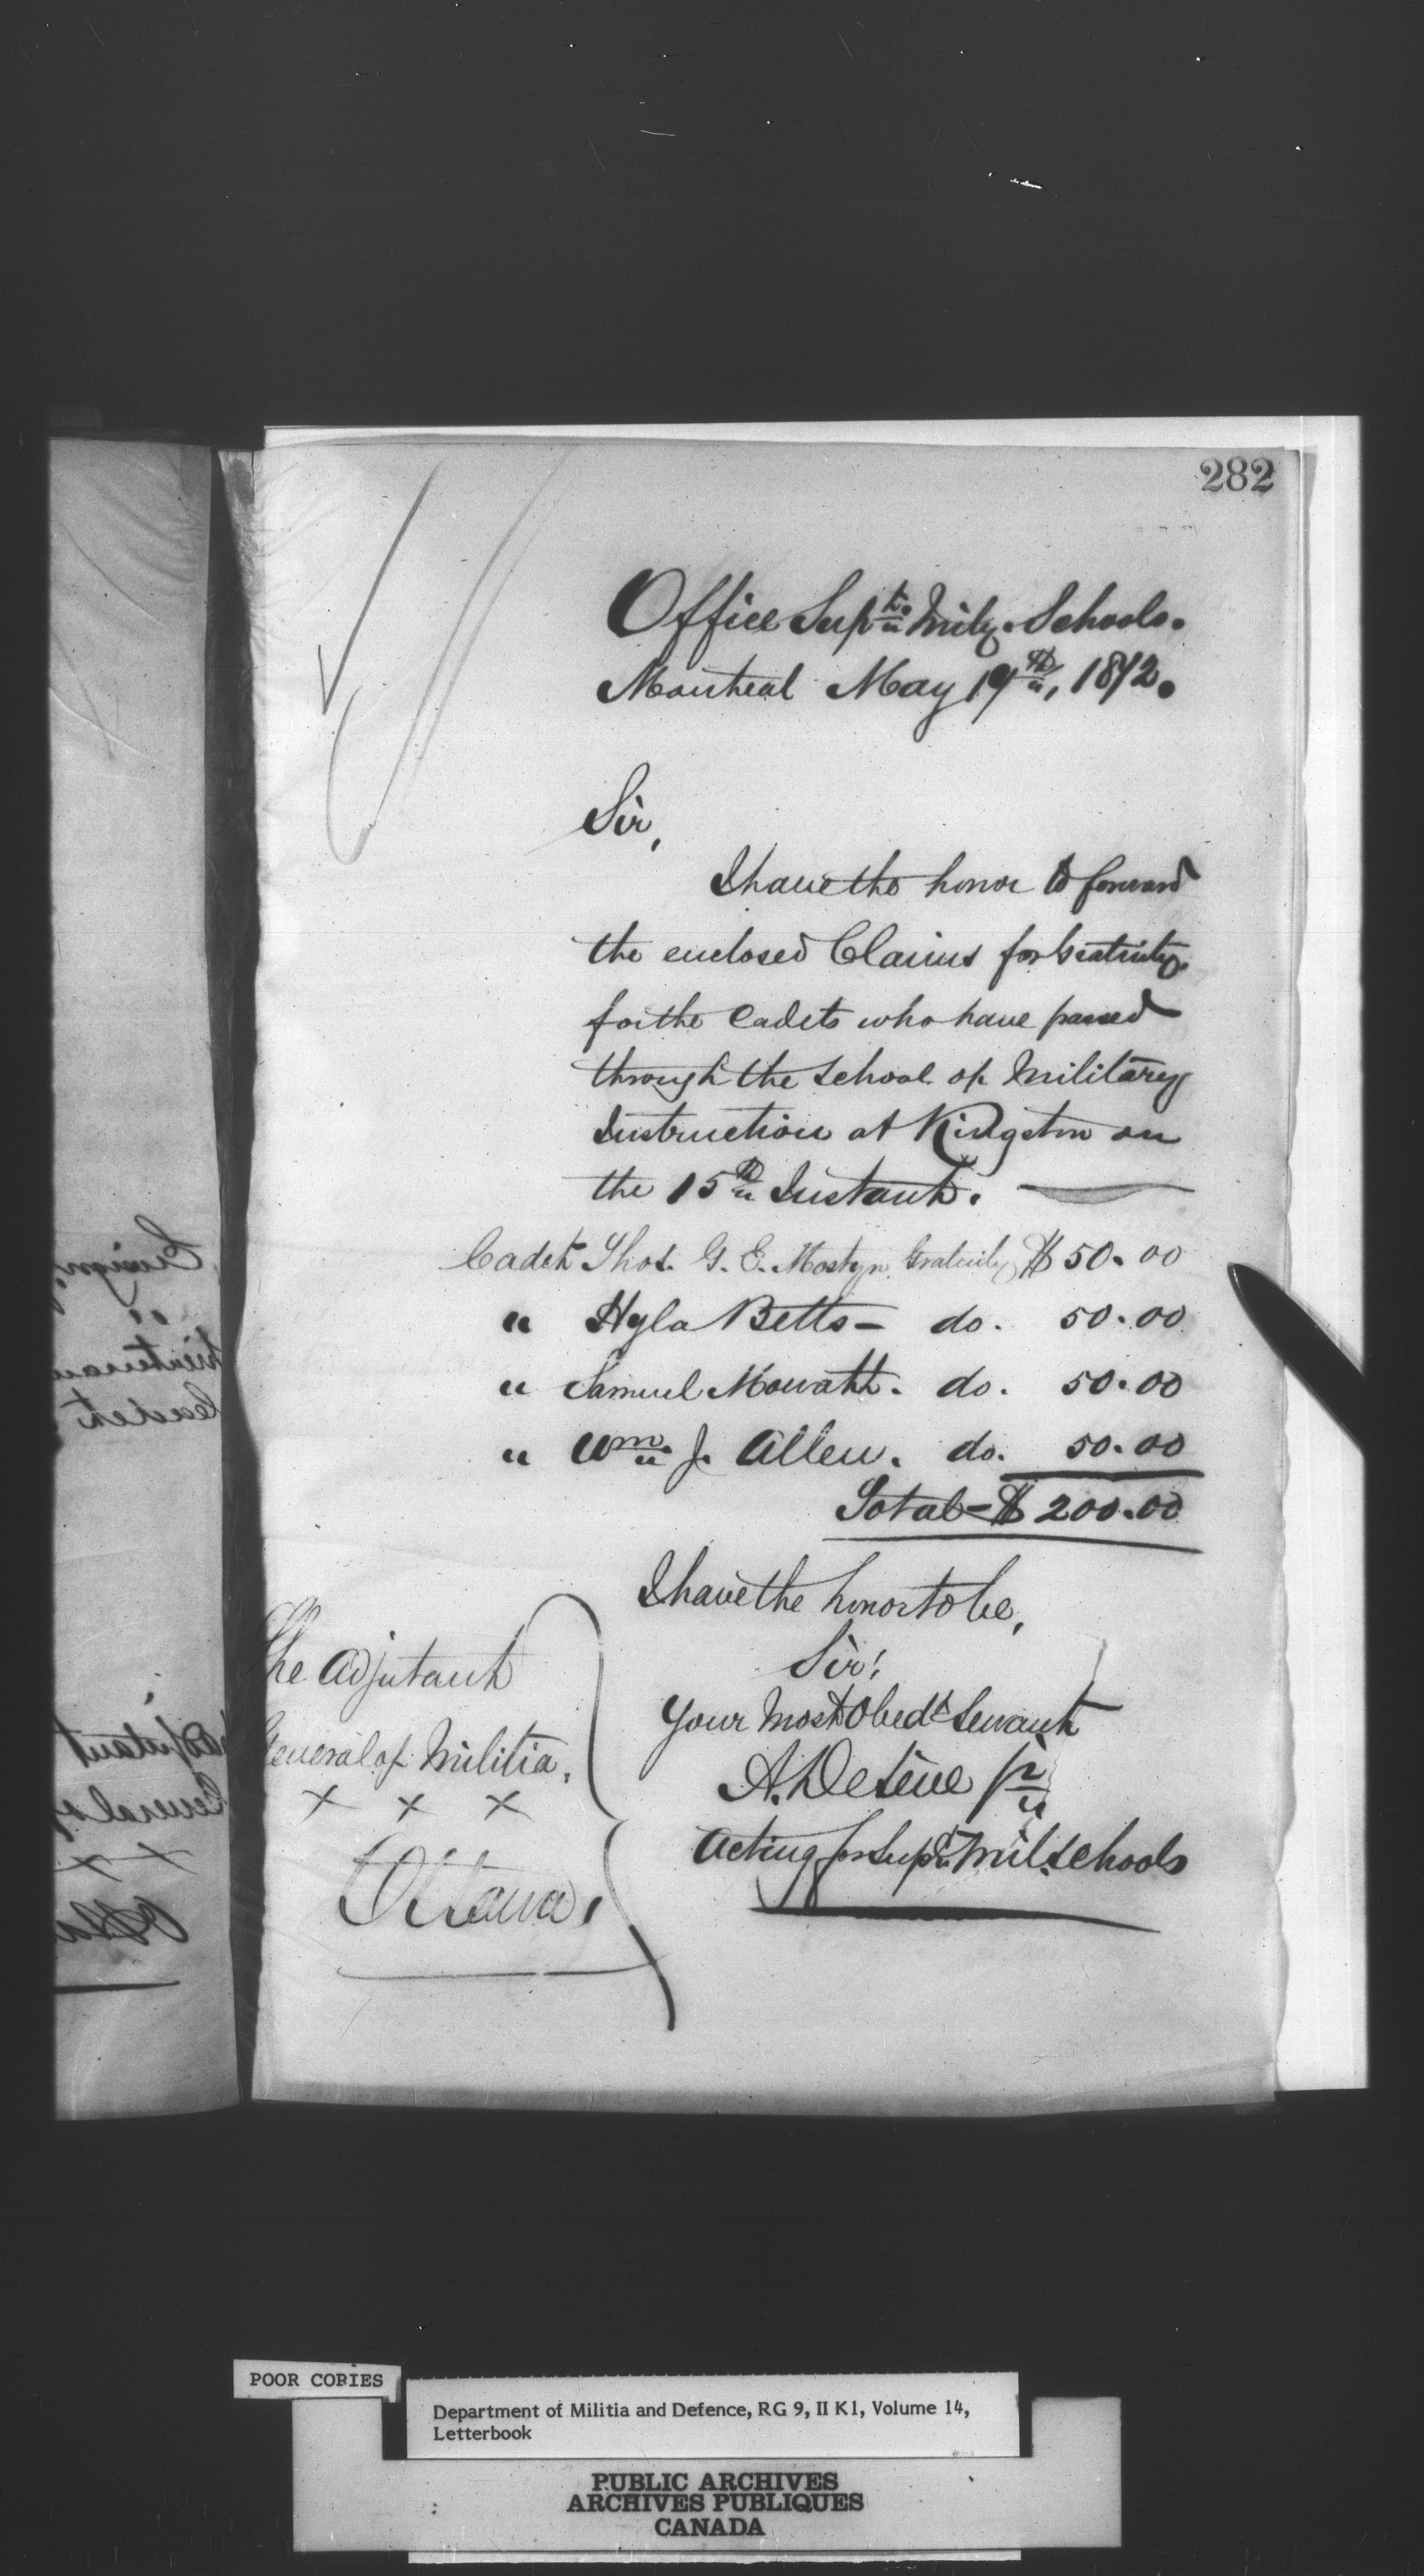 282
Office Supt. Mily. Schools.
Montreal May 19th, 1872.
Sir,
I have the honor to forward
the enclosed Claims for Gratuity
for the Cadets who have passed
through the School of Military
Instruction at Kingston on
the 15th Instant.
Cadet Thos. G. E. Mostyn Gratuity $50.00
" Hyla Betts - do. 50.00
" Samuel Mowatt. do. 50.00
" Wm. J. Allen. do. 50.00
Total - $200.00
I have the honor to be,
Sir,
Your Most Obedt Servant
A. DeLéve Jr
Acting for Supt Mil. Schools
The Adjutant
General of Militia,
x x x
Ottawa,
POOR COPIES
Department of Militia and Defence, RG 9, II K1, Volume 14,
Letterbook
PUBLIC ARCHIVES
ARCHIVES PUBLIQUES
CANADA